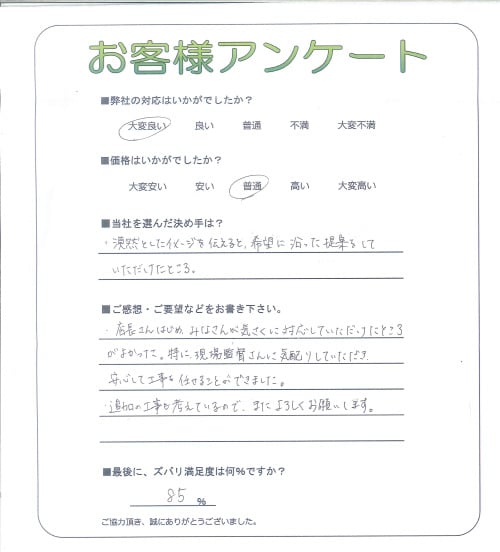 お客様アンケート
■弊社の対応はいかがでしたか？
大変良い 良い 普通 不満 大変不満
■価格はいかがでしたか？
大変安い 安い 普通 高い 大変高い
■当社を選んだ決め手は？
・漠然としたイメージを伝えると、希望に沿った提案をして
いただけたところ。
■ご感想・ご要望などをお書き下さい。
・店長さんはじめ、みなさんが気さくに対応していただけたところ
がよかった。特に、現場監督さんに気配りしていただき
安心して工事を任せることができました。
・追加の工事も考えているので、またよろしくお願いします。
■最後に、ズバリ満足度は何％ですか？
85 %
ご協力頂き、誠にありがとうございました。